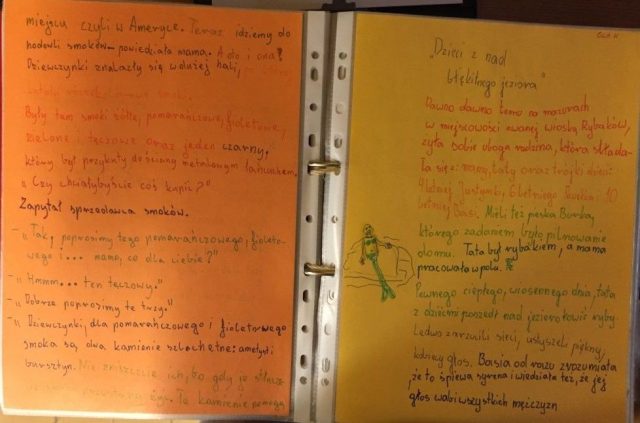 miejscu czyli w Ameryce. Teraz idziemy do
hodowli smoków – powiedziała mama. A oto i ona!
Dziewczynki znalazły się w dużej hali,
Były tam smoki żółte, pomarańczowe, fioletowe,
zielone i tęczowe oraz jeden czarny,
który był przykuty do ściany metalowym łańcuchem.
„Czy chciałybyście coś kupić?"
Zapytał sprzedawca smoków.
-„Tak, poprosimy tego pomarańczowego, fioleto-
wego i... mamo, co dla ciebie?"
-„Hmmm... ten tęczowy."
-„Dobrze poprosimy te trzy."
-„Dziewczynki, dla pomarańczowego i fioletowego
smoka są dwa kamienie szlachetne: ametyst i
bursztyn. Nie zniszczcie ich, bo gdy je
te kamienie pomogą
„Dzieci z nad
błękitnego jeziora"
Dawno dawno temu na mazurach
w miejscowości zwanej wioską Rybaków,
żyła sobie uboga rodzina, która składa-
ła się z: mamy, taty oraz trójki dzieci:
4letniej Justynki, 6letniego 10
letniej Basi. Mieli też pieska Burka,
którego zadaniem było pilnowanie
domu. Tata był rybakiem, a mama
pracowała w polu.
Pewnego ciepłego, wiosennego dnia, tata
z dziećmi poszedł nad jezioro łowić ryby.
Ledwo zarzucili sieci, usłyszeli piękny,
kobiecy głos. Basia od razu zrozumiała
że to śpiewa syrena i wiedziała też, że jej
głos wabi wszystkich mężczyzn